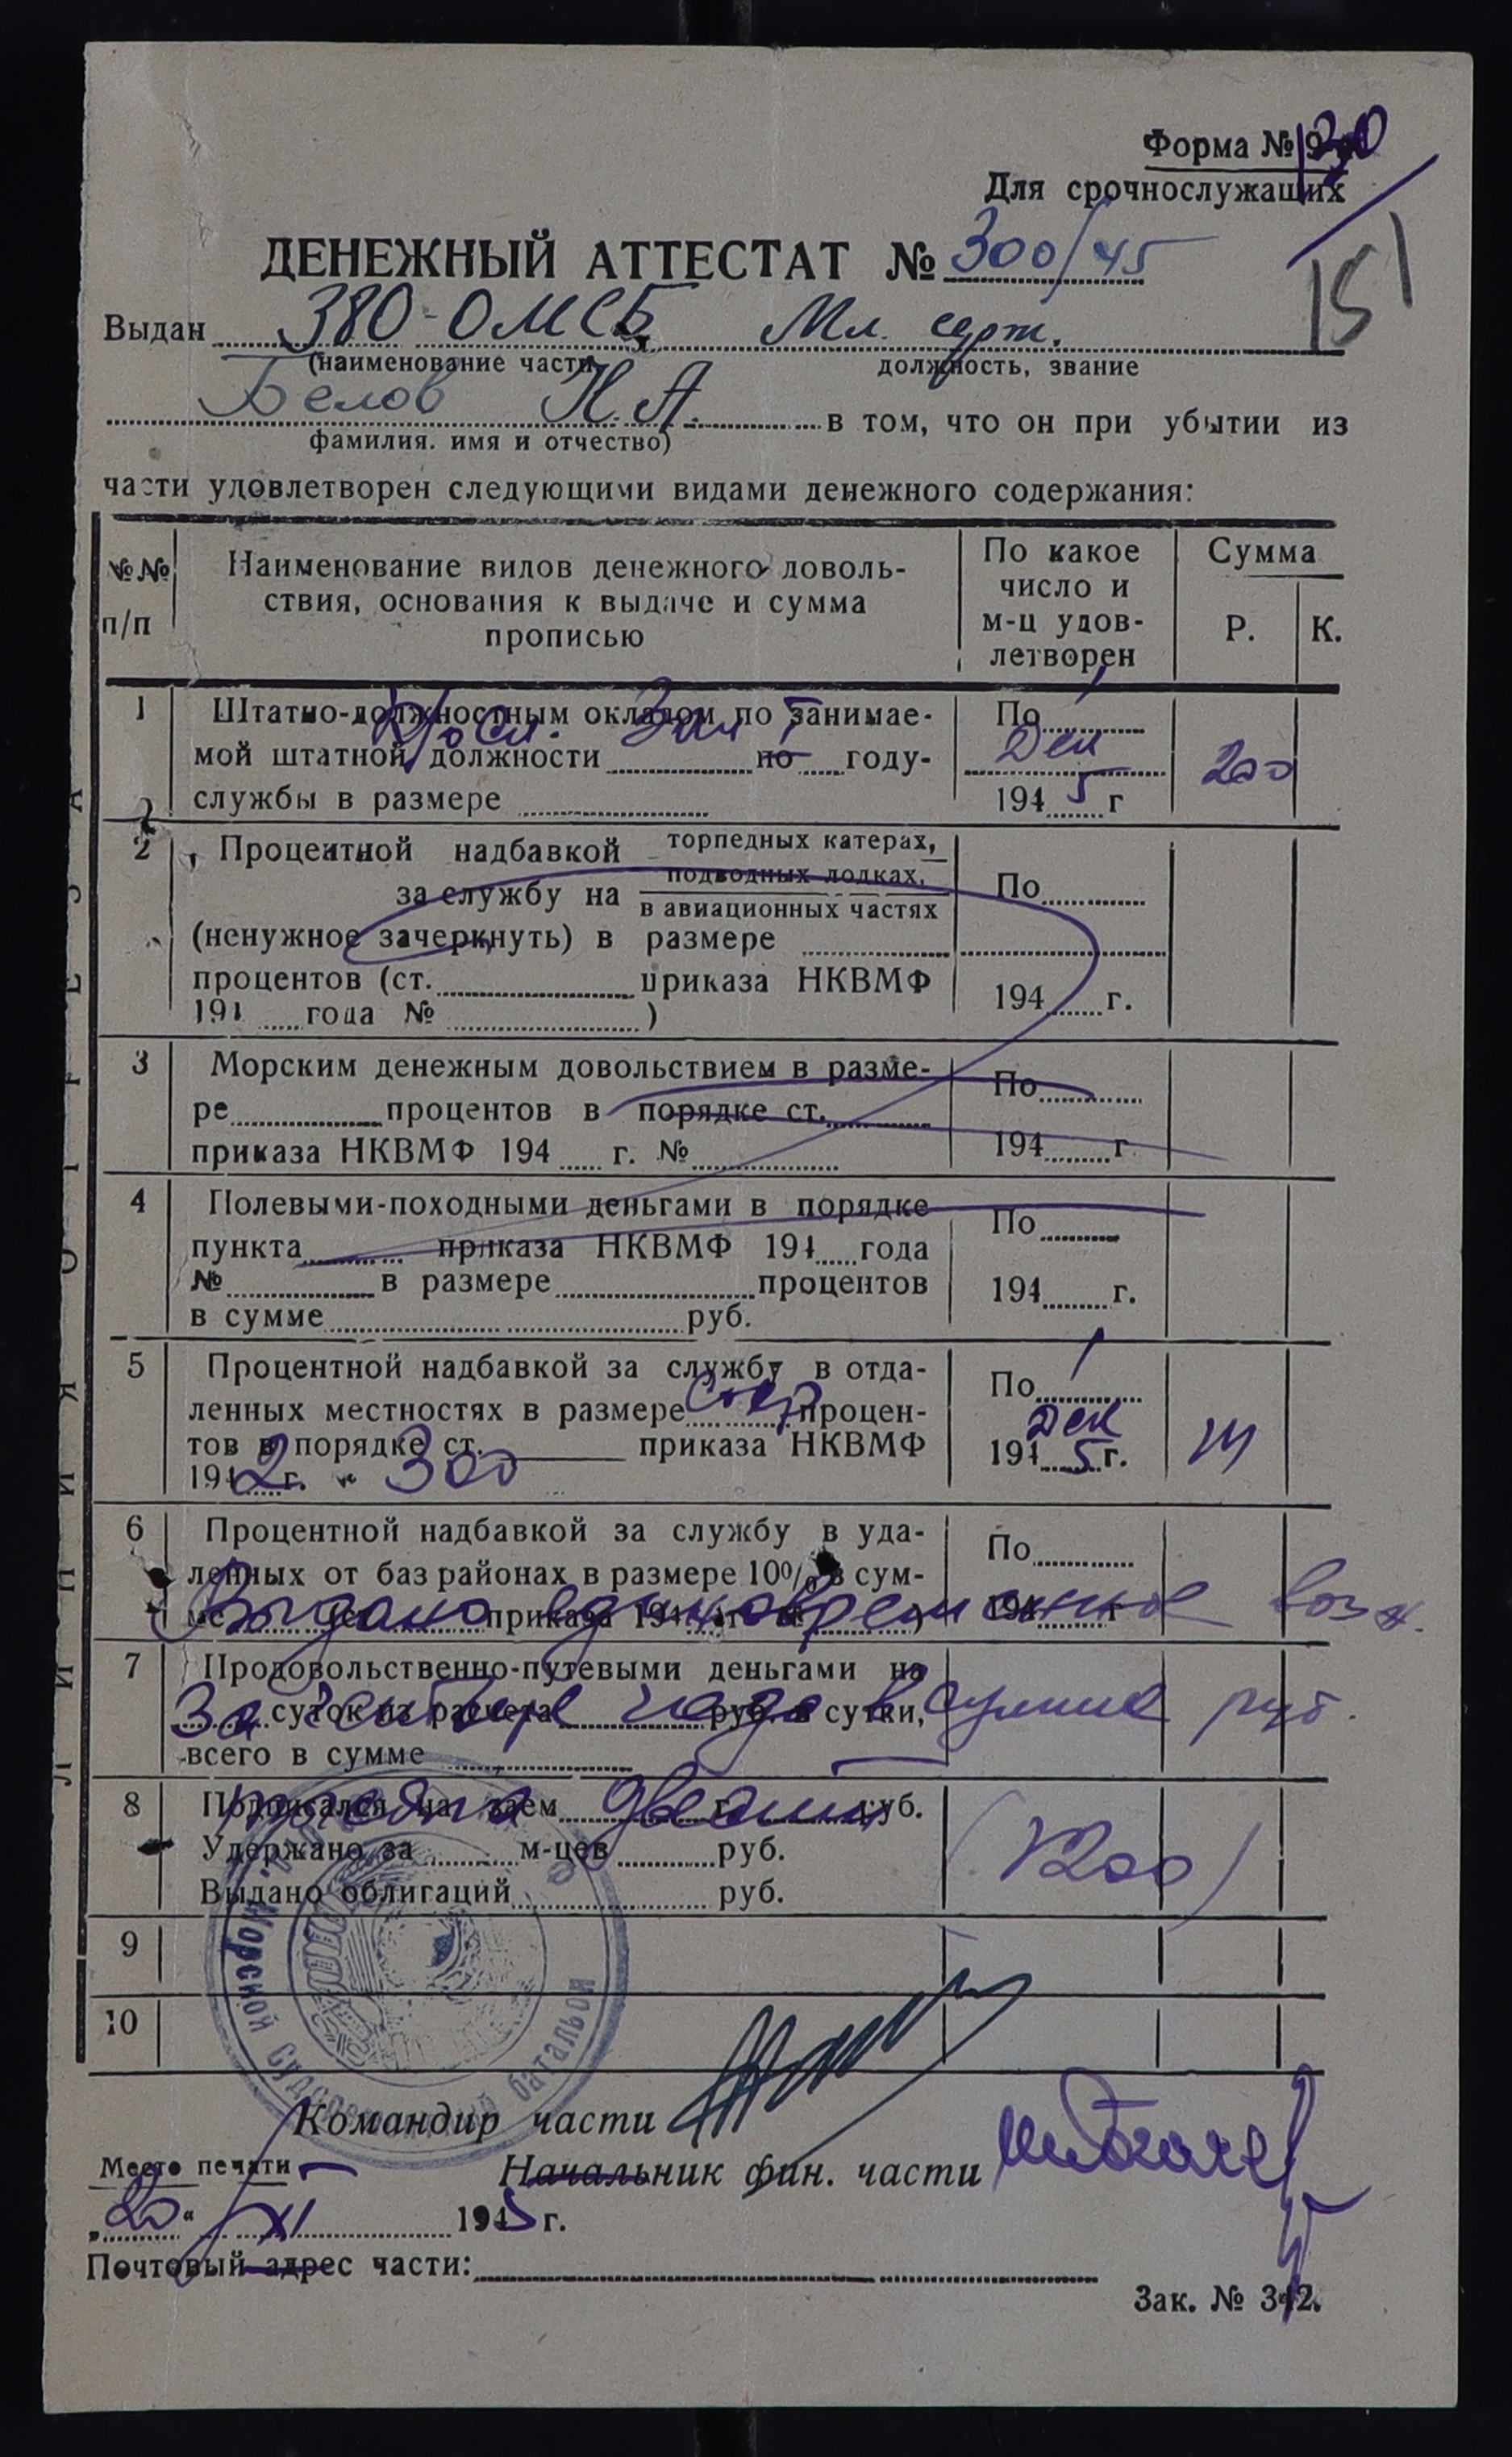 Форма № 9
130
Для срочнослужащих
151
ДЕНЕЖНЫЙ АТТЕСТАТ № 300/45
Выдан 380-ОМСБ, Мл. серж.
(наименование части, должность, звание
Белов Н. А. в том, что он при убытии из
фамилия. имя и отчество)
части удовлетворен следующими видами денежного содержания:
№№ п/п
Наименование видов денежного доволь-
ствия, основания к выдаче и сумма
прописью
По какое
число и
м-ц удов-
летворен
Сумма
Р. К.
1 Штатно-должностным окладом по занимае- По 1
мой штатной должности по году- Дек 200
службы в размере 1945 г
2 Процентной надбавкой торпедных катерах,
за службу на подводных лодках, По
в авиационных частях
(ненужное зачеркнуть) в размере
процентов (ст. приказа НКВМФ 194 г.
194 года № )
3 Морским денежным довольствием в разме- По
ре процентов в порядке ст.
приказа НКВМФ 194 г. № 194 г.
4 Полевыми-походными деньгами в порядке По
пункта приказа НКВМФ 194 года
№ в размере процентов 194 г.
в сумме руб.
5 Процентной надбавкой за службу в отда- По 1
ленных местностях в размере процен- Дек
тов в порядке ст. приказа НКВМФ 1945 г.
1942 г. № 300
6 Процентной надбавкой за службу в уда- По
ленных от баз районах в размере 10% в сум-
ме (ст. приказа 194 г. № ) 194 г
Выдано единовременное возн.
7 Продовольственно-путевыми деньгами на
суток из расчета руб. в сутки,
За четыре года в сумме руб.
всего в сумме
8 Подписался на заем г. руб.
тысяча двести (1200)
Удержано за м-цев руб.
Выдано облигаций руб.
9
10
Морской Судоремонтный батальон
Командир части
Место печати
Начальник фин. части
„20“ XI 1945 г.
Почтовый адрес части:
Зак. № 342.
ЛИНИЯ ОТРЕЗА